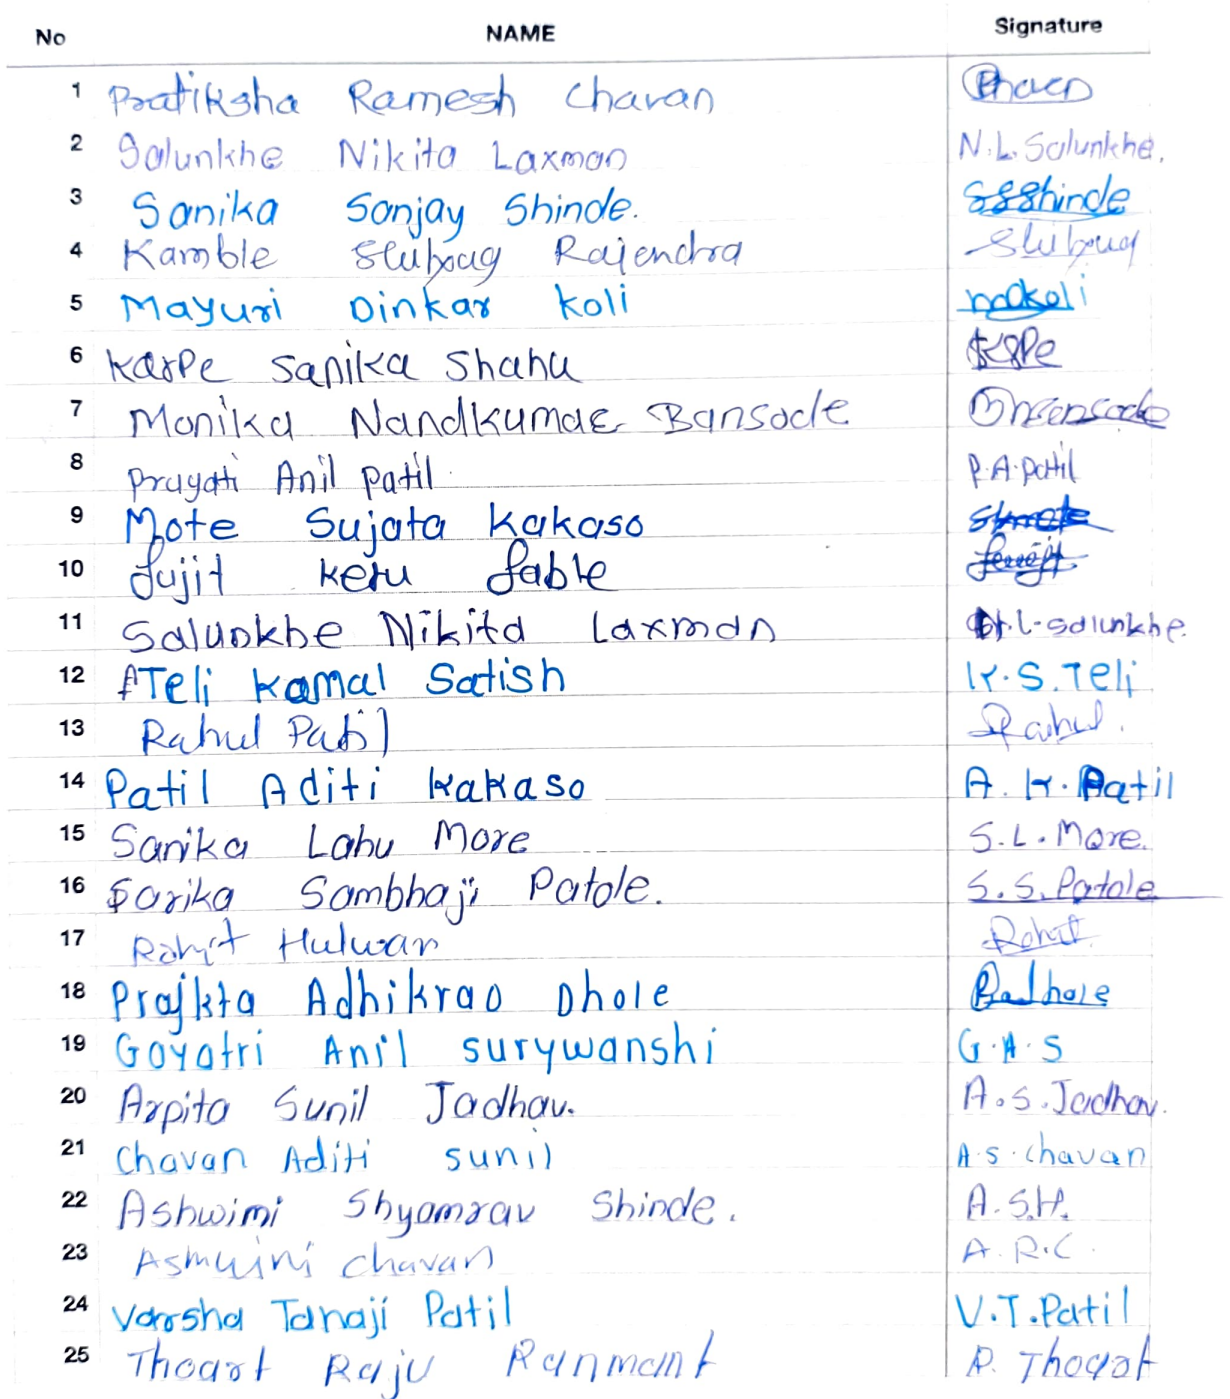 No NAME Signature
1 Pratiksha Ramesh Chavan
2 Salunkhe Nikita Laxman N.L. Salunkhe.
3 Sanika Sanjay Shinde. SSShinde
4 Kamble Rajendra
5 Mayuri Dinkar Koli
6 Karpe Sanika Shahu
7 Monika Nandkumar Bansode
8 Pragati Anil Patil. P.A.Patil
9 Mote Sujata Kakaso
10 Sujit Keru Sable
11 Salunkhe Nikita Laxman L. Salunkhe.
12 Teli Kamal Satish K.S. Teli
13 Rahul Patil Rahul.
14 Patil Aditi Kakaso A. K. Patil
15 Sanika Lahu More S.L. More.
16 Sarika Sambhaji Patole. S.S. Patole
17 Rohit Hulwan Rohit
18 Prajkta Adhikrao Dhole
19 Gayatri Anil Surywanshi G.A.S
20 Arpita Sunil Jadhav. A.S. Jadhav.
21 Chavan Aditi Sunil A.S. Chavan
22 Ashwimi Shyamrav Shinde. A.S.H.
23 Ashwini Chavan A.R.C.
24 Varsha Tanaji Patil V.T. Patil
25 Thoart Raju Ranmant R. Thoart